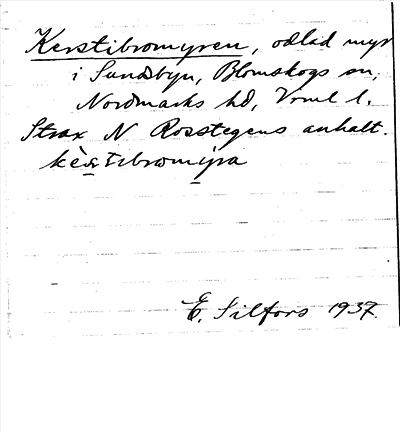 Kerstibromyren, odlad myr
i Sundsbyn, Blomskogs sn,
Nordmarks hd, Vrml l.
Strax N Rosstegens anhalt.
kè̱stibromy̱ra
E. Silfors 1937.